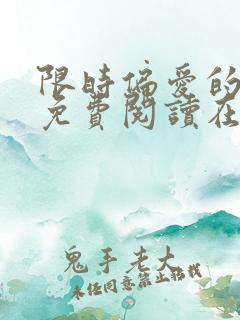 限時偏愛的
免費閱讀在
鬼手老大
未经同意禁止转载